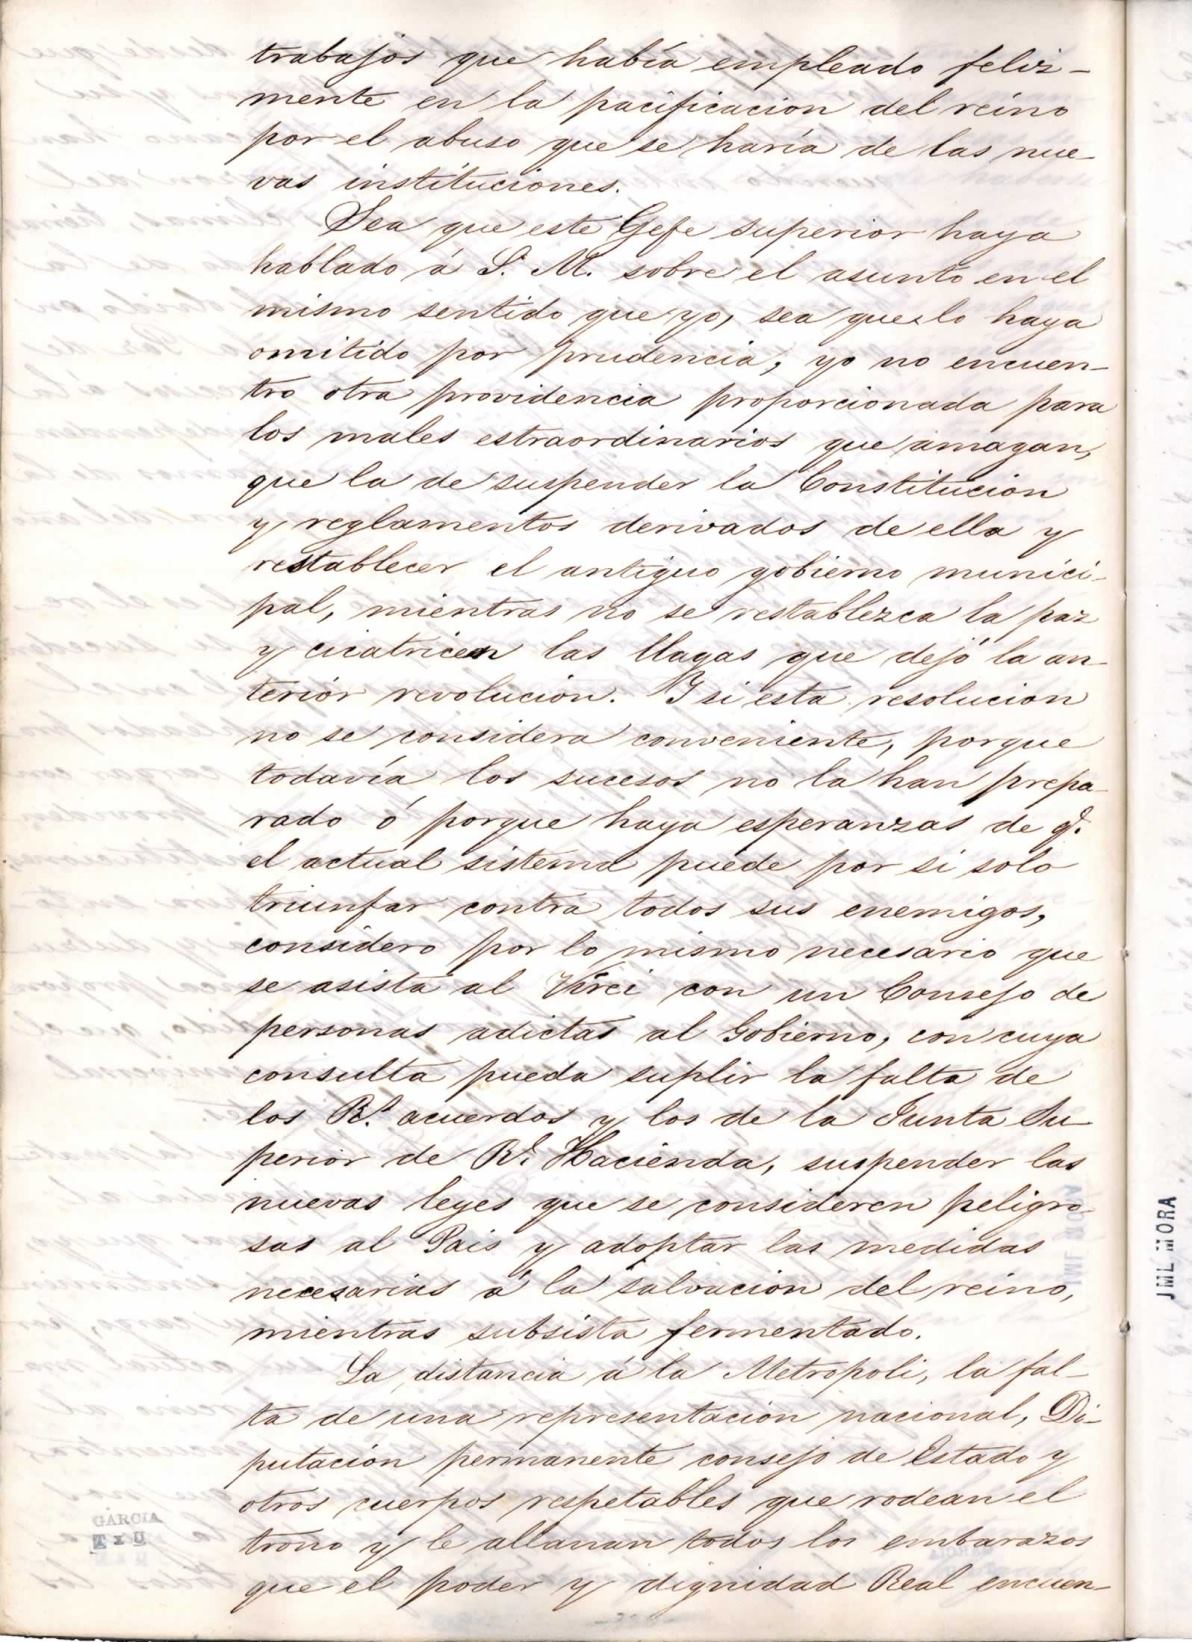 trabajos que había empleado feliz-
mente en la pacificacion del reino
por el abuso que se haría de las nue-
vas instituciones.
Sea que este Gefe superior haya
hablado á S. M. sobre el asunto en el
mismo sentido que yo, sea que lo haya
omitido por prudencia, yo no encuen-
tro otra providencia proporcionada para
los males estraordinarios que amagan,
que la de suspender la Constitucion
y reglamentos derivados de ella y
restablecer el antiguo gobierno munici-
pal, mientras no se restablezca la paz
y cicatricen las llagas que dejó la an-
terior revolucion. Y si esta resolucion
no se considera conveniente, porque
todavía los sucesos no la han prepa-
rado ó porque haya esperanzas de q.e
el actual sistema puede por si solo
triunfar contra todos sus enemigos,
considero por lo mismo necesario que
se asista al Virei con un Consejo de
personas adictas al Gobierno, con cuya
consulta pueda suplir la falta de
los R.s acuerdos y los de la Junta Su-
perior de R.l Hacienda, suspender las
nuevas leyes que se consideren peligro-
sas al Pais y adoptar las medidas
necesarias á la salvacion del reino,
mientras subsista fermentado.
La distancia á la Metropoli, la fal-
ta de una representacion nacional, Di-
putacion permanente consejo de Estado y
otros cuerpos respetables que rodean el
trono y le allanan todos los embarazos
que el poder y dignidad Real encuen-
GARCIA
TxU
JML MORA